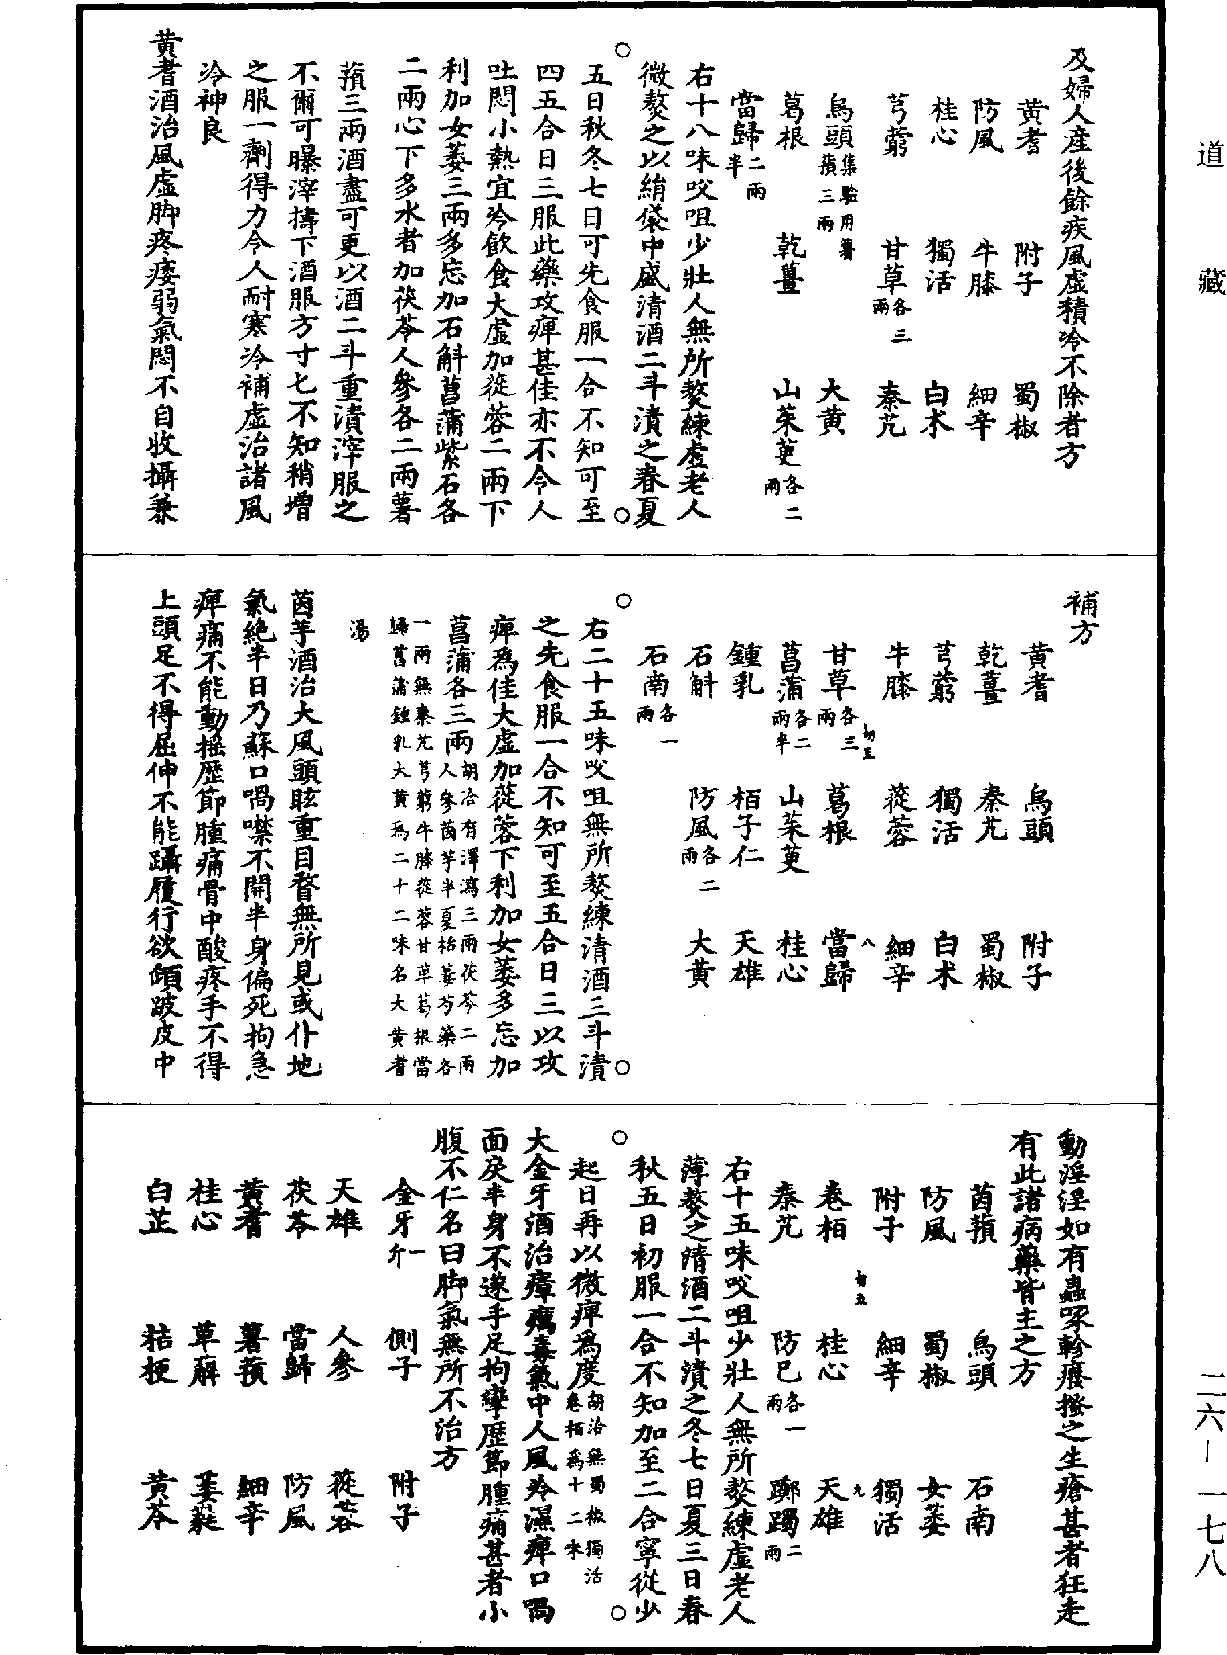 道藏
及婦人産後餘疾風虛積冷不除者方
黄耆 附子 蜀椒
防風 牛膝 細辛
桂心 獨活 白术
芎藭 甘草各三兩 秦艽
烏頭集驗用薯蕷三兩 大黄
葛根 乾薑 山茱萸各二兩
當歸二兩半
右十八味㕮咀少壯人無所熬練虛老人
微熬之以絹袋中盛清酒二斗漬之春夏
五日秋冬七日可先食服一合不知可至
四五合日三服此藥攻痺甚佳亦不令人
吐悶小熱宜冷飲食大虛加蓯蓉二兩下
利加女萎三兩多忘加石斛菖蒲紫石各
二兩心下多水者加茯苓人參各二兩薯
蕷三兩酒盡可更以酒二斗重漬滓服之
不爾可曝滓擣下酒服方寸匕不知稍增
之服一劑得力令人耐寒冷補虛治諸風
冷神良
黄耆酒治風虛脚疼痿弱氣悶不自收攝兼
補方
黄耆 烏頭 附子
乾薑 秦艽 蜀椒
芎藭 獨活 白术
牛膝 蓯蓉 細辛
甘草各三兩 葛根 當歸
菖蒲各二兩半 山茱萸 桂心
鍾乳 栢子仁 天雄
石斛 防風各二兩 大黄
石南各一兩
右二十五味㕮咀無所熬練清酒三斗漬
之先食服一合不知可至五合日三以攻
痺為佳大虛加蓯蓉下利加女萎多忘加
菖蒲各三兩胡洽有澤瀉三兩茯苓二兩人參茵芋半夏栝蔞芍藥各
一兩無秦艽芎藭牛膝蓯蓉甘草葛根當歸菖蒲鍾乳大黄為二十二味名大黄耆
湯
茵芋酒治大風頭眩重目瞀無所見或仆地
氣絶半日乃蘇口喎噤不開半身偏死拘急
痺痛不能動摇歷節腫痛骨中酸疼手不得
上頭足不得屈伸不能躡履行欲傾跛皮中
動淫淫如有蟲啄軫癢搔之生瘡甚者狂走
有此諸病藥皆主之方
茵蕷 烏頭 石南
防風 蜀椒 女萎
附子 細辛 獨活
卷栢 桂心 天雄
秦艽 防已各一兩 躑躅二兩
右十五味㕮咀少壯人無所熬練虛老人
薄熬之清酒二斗漬之冬七日夏三日春
秋五日初服一合不知加至二合寧從少
起日再以微痺為度胡洽無蜀椒獨活卷栢為十二味
大金牙酒治瘴癘毒氣中人風冷濕痺口喎
面戾半身不遂手足拘攣歷節腫痛甚者小
腹不仁名曰脚氣無所不治方
金牙一斤 側子 附子
天雄 人參 蓯蓉
茯苓 當歸 防風
黄耆 薯蕷 細辛
桂心 萆薢 葳蕤
白芷 桔梗 黄芩
二六—一七八